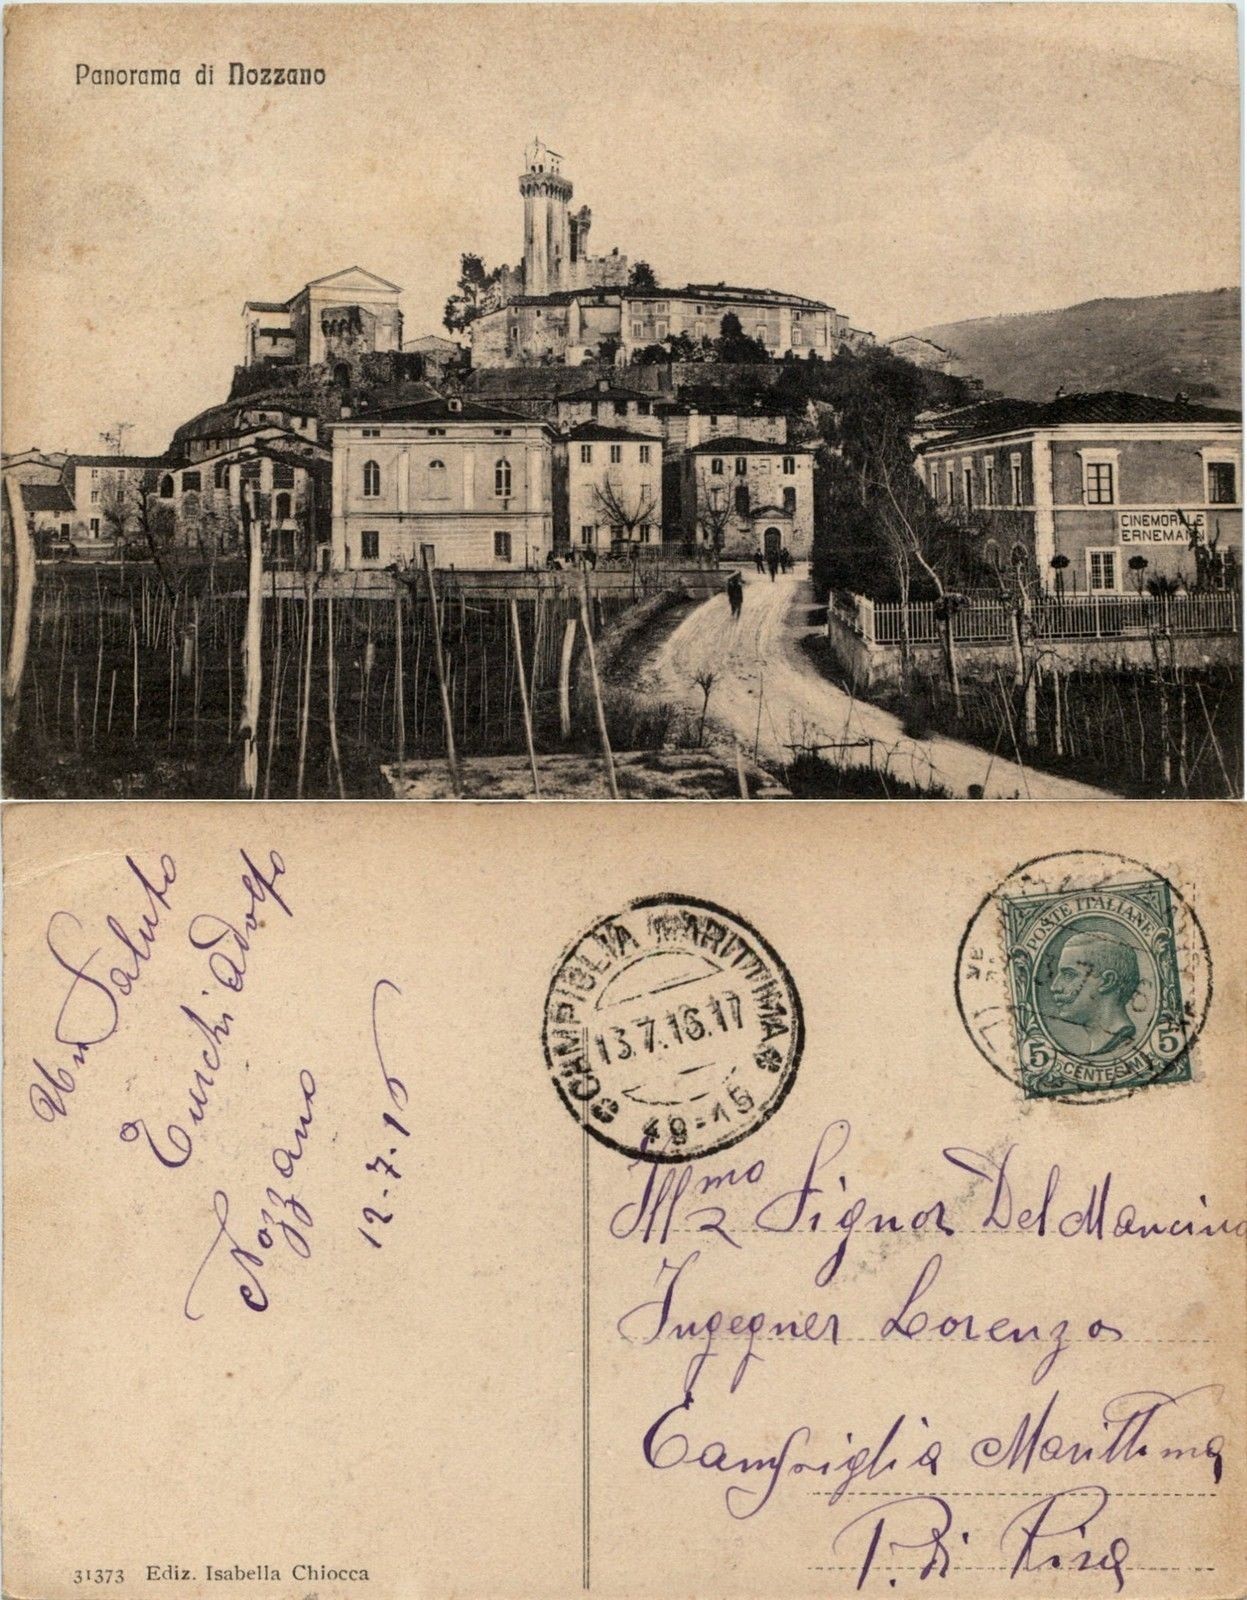 Panorama di Nozzano
CINEMORALE
ERNEMANN
Un Saluto
Turchi Adolfo
Nozzano
12-7.16
CAMPIGLIA MARITTIMA
13.7.16.17
49-15
POSTE ITALIANE
5 5
CENTESIMI
Illmo Signor Del Mancino
Ingegner Lorenzo
Campiglia Marittima
P. di Pisa
31373 Ediz. Isabella Chiocca